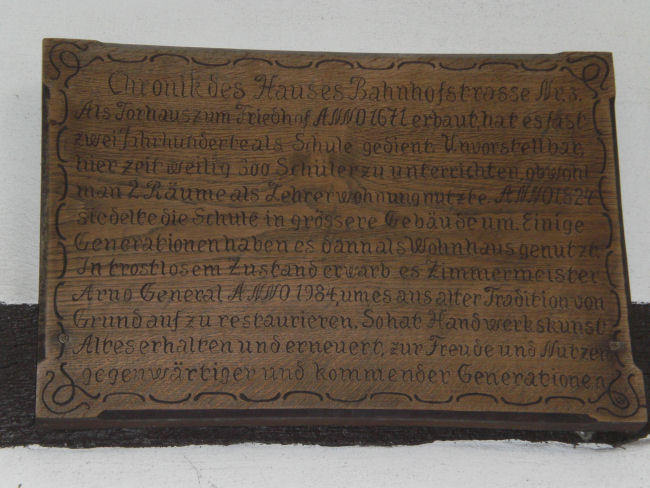 Chronik des Hauses Bahnhofstrasse Nr. 3.
Als Torhaus zum Friedhof ANNO 1671 erbaut, hat es fast
zwei Jahrhunderte als Schule gedient. Unvorstellbar,
hier zeitweilig 300 Schüler zu unterrichten, obwohl
man 2 Räume als Lehrerwohnung nutzte. ANNO 1824
siedelte die Schule in grössere Gebäude um. Einige
Generationen haben es dann als Wohnhaus genutzt.
In trostlosem Zustand erwarb es Zimmermeister
Arno General ANNO 1984, um es aus alter Tradition von
Grund auf zu restaurieren. So hat Handwerkskunst
Altes erhalten und erneuert, zur Freude und Nutzen
gegenwärtiger und kommender Generationen